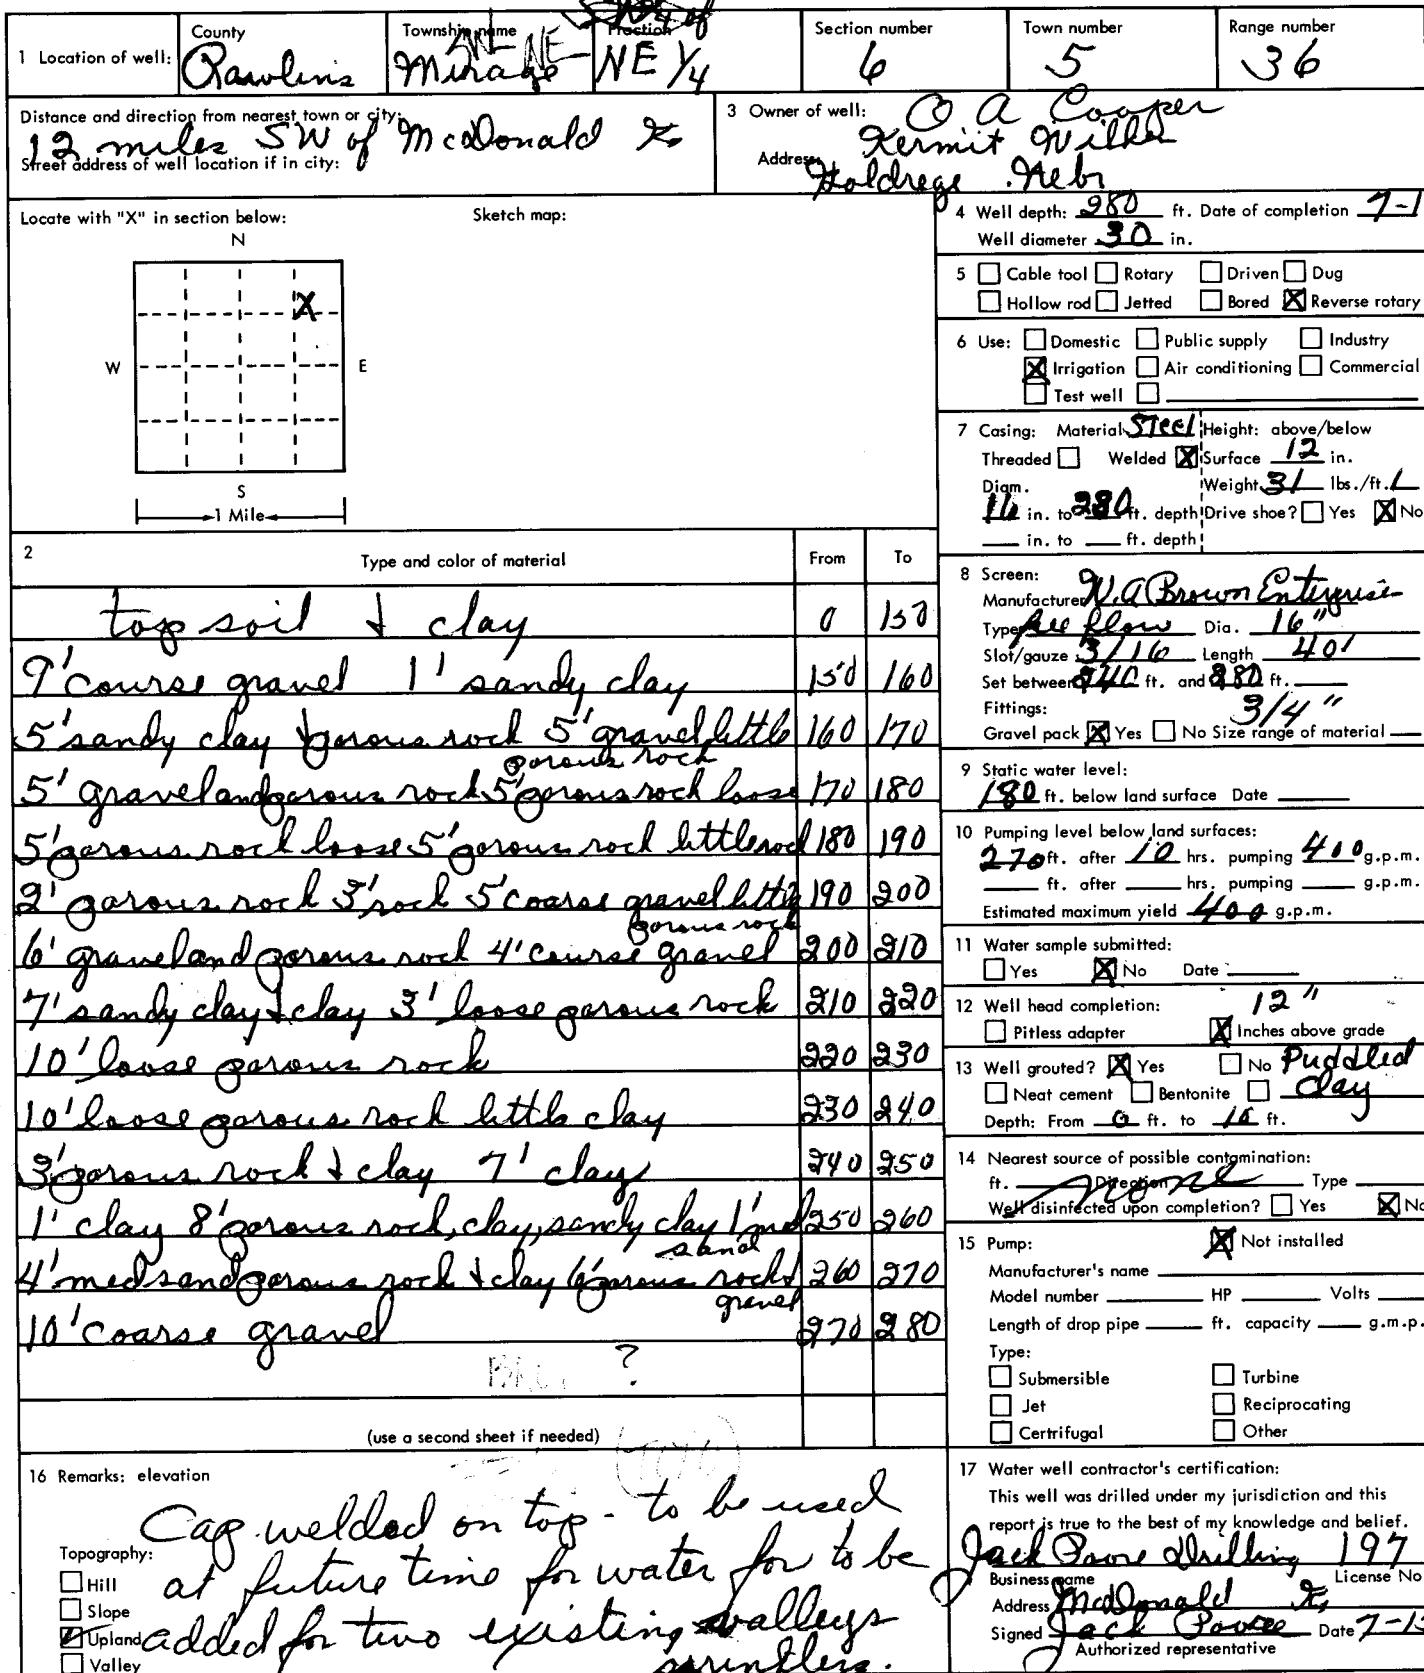 County Township name Fraction Section number Town number Range number
1 Location of well: Rawlins Mirage NE NE 1/4 6 5 36
Distance and direction from nearest town or city:
12 miles SW of McDonald Ks
Street address of well location if in city:
3 Owner of well: O A Cooper
Kermit Wilke
Address: Holdrege Nebr
Locate with "X" in section below: Sketch map:
N
X
W E
S
1 Mile
4 Well depth: 280 ft. Date of completion 7-1
Well diameter 30 in.
5 Cable tool Rotary Driven Dug
Hollow rod Jetted Bored X Reverse rotary
6 Use: Domestic Public supply Industry
X Irrigation Air conditioning Commercial
Test well
7 Casing: Material Steel Height: above/below
Threaded Welded X Surface 12 in.
Diam. Weight 31 lbs./ft.
16 in. to 280 ft. depth Drive shoe? Yes X No
in. to ft. depth
8 Screen:
Manufacturer W.A Brown Enterprise
Type flow Dia. 16"
Slot/gauze 3/16 Length 40'
Set between 240 ft. and 280 ft.
Fittings: 3/4"
Gravel pack X Yes No Size range of material
9 Static water level:
180 ft. below land surface Date
10 Pumping level below land surfaces:
270 ft. after 10 hrs. pumping 400 g.p.m.
ft. after hrs. pumping g.p.m.
Estimated maximum yield 400 g.p.m.
11 Water sample submitted:
Yes X No Date
12 Well head completion: 12"
Pitless adapter X Inches above grade
13 Well grouted? X Yes No Puddled
Neat cement Bentonite Clay
Depth: From 0 ft. to 10 ft.
14 Nearest source of possible contamination:
ft. Direction none Type
Well disinfected upon completion? Yes X No
15 Pump: X Not installed
Manufacturer's name
Model number HP Volts
Length of drop pipe ft. capacity g.m.p.
Type:
Submersible Turbine
Jet Reciprocating
Certrifugal Other
2 Type and color of material From To
top soil & clay 0 150
9' course gravel 1' sandy clay 150 160
5' sandy clay & porous rock 5' gravel, little porous rock 160 170
5' gravel and porous rock 5' porous rock loose 170 180
5' porous rock loose 5' porous rock little rock 180 190
2' porous rock 3' rock 5' coarse gravel little porous rock 190 200
6' gravel and porous rock 4' course gravel 200 210
7' sandy clay & clay 3' loose porous rock 210 220
10' loose porous rock 220 230
10' loose porous rock little clay 230 240
3' porous rock & clay 7' clay 240 250
1' clay 8' porous rock, clay, sandy clay 1' med sand 250 260
4' med sand porous rock & clay 6' porous rock & gravel 260 270
10' coarse gravel 270 280
?
(use a second sheet if needed)
16 Remarks: elevation
Cap welded on top - to be used
at future time for water for to be
added for two existing valleys
sprinklers.
Topography:
Hill
Slope
Upland
Valley
17 Water well contractor's certification:
This well was drilled under my jurisdiction and this
report is true to the best of my knowledge and belief.
Jack Poore Drilling 197
Business name License No
Address McDonald Ks
Signed Jack Poore Date 7-13
Authorized representative